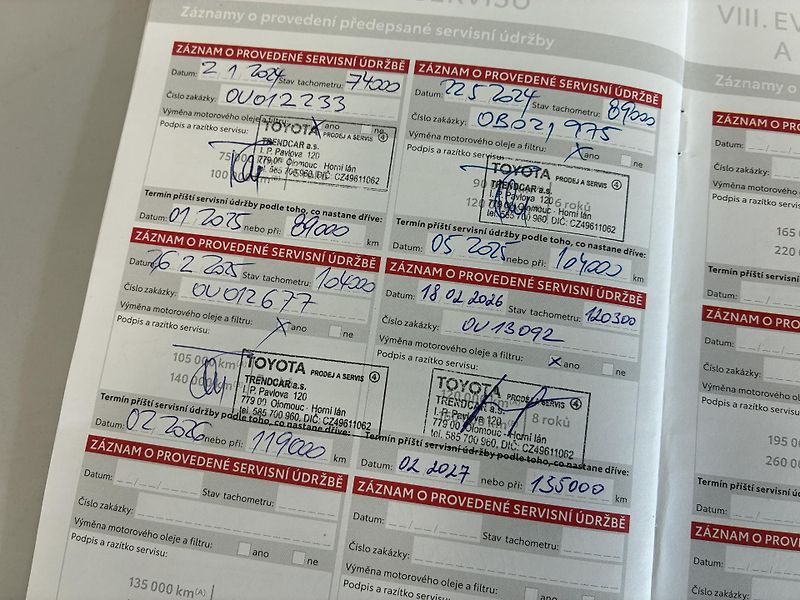 SERVISU
Záznamy o provedení předepsané servisní údržby
ZÁZNAM O PROVEDENÉ SERVISNÍ ÚDRŽBĚ
Datum: 2 1 2024 Stav tachometru: 74000
Číslo zakázky: OU012233
Výměna motorového oleje a filtru: X ano ne
Podpis a razítko servisu:
TOYOTA PRODEJ A SERVIS 4
TRENDCAR a.s.
I. P. Pavlova 120
779 00 Olomouc - Horní lán
tel. 585 700 960, DIČ: CZ49611062
Termín příští servisní údržby podle toho, co nastane dříve:
Datum: 01 2025 nebo při: 89000 km
ZÁZNAM O PROVEDENÉ SERVISNÍ ÚDRŽBĚ
Datum: 22.5 2024 Stav tachometru: 89000
Číslo zakázky: OB021975
Výměna motorového oleje a filtru: X ano ne
Podpis a razítko servisu:
TOYOTA PRODEJ A SERVIS 4
TRENDCAR a.s.
I. P. Pavlova 120
779 00 Olomouc - Horní lán
tel. 585 700 960, DIČ: CZ49611062
6 roků
Termín příští servisní údržby podle toho, co nastane dříve:
Datum: 05 2025 nebo při: 104000 km
ZÁZNAM O PROVEDENÉ SERVISNÍ ÚDRŽBĚ
Datum: 26 2 2025 Stav tachometru: 104000
Číslo zakázky: OU012677
Výměna motorového oleje a filtru: X ano ne
Podpis a razítko servisu:
105 000 km
140 000 km
TOYOTA PRODEJ A SERVIS 4
TRENDCAR a.s.
I. P. Pavlova 120
779 00 Olomouc - Horní lán
tel. 585 700 960, DIČ: CZ49611062
Termín příští servisní údržby podle toho, co nastane dříve:
Datum: 02 2026 nebo při: 119000 km
ZÁZNAM O PROVEDENÉ SERVISNÍ ÚDRŽBĚ
Datum: 18 02 2026 Stav tachometru: 120300
Číslo zakázky: OU13092
Výměna motorového oleje a filtru: X ano ne
Podpis a razítko servisu:
TOYOTA PRODEJ A SERVIS 4
TRENDCAR a.s.
I. P. Pavlova 120
779 00 Olomouc - Horní lán
tel. 585 700 960, DIČ: CZ49611062
8 roků
Termín příští servisní údržby podle toho, co nastane dříve:
Datum: 02 2027 nebo při: 135000 km
ZÁZNAM O PROVEDENÉ SERVISNÍ ÚDRŽBĚ
Datum: Stav tachometru:
Číslo zakázky:
Výměna motorového oleje a filtru: ano ne
Podpis a razítko servisu:
135 000 km(A)
ZÁZNAM O PROVEDENÉ SERVISNÍ ÚDRŽBĚ
Datum: Stav tachometru:
Číslo zakázky:
Výměna motorového oleje a filtru: ano
Podpis a razítko servisu:
VIII. EV
A
Záznamy o
ZÁZNAM O P
Datum:
Číslo zakázky:
Výměna motorov
Podpis a razítko s
165
220
Termín příští servisní
Datum:
ZÁZNAM O PR
Datum:
Číslo zakázky:
Výměna motorového
Podpis a razítko servi
195 0
260 0
Termín příští servisní úd
Datum:
ZÁZNAM O PRO
Datum:
Číslo zakázky:
Výměna motorového ol
Podpis a razítko servisu